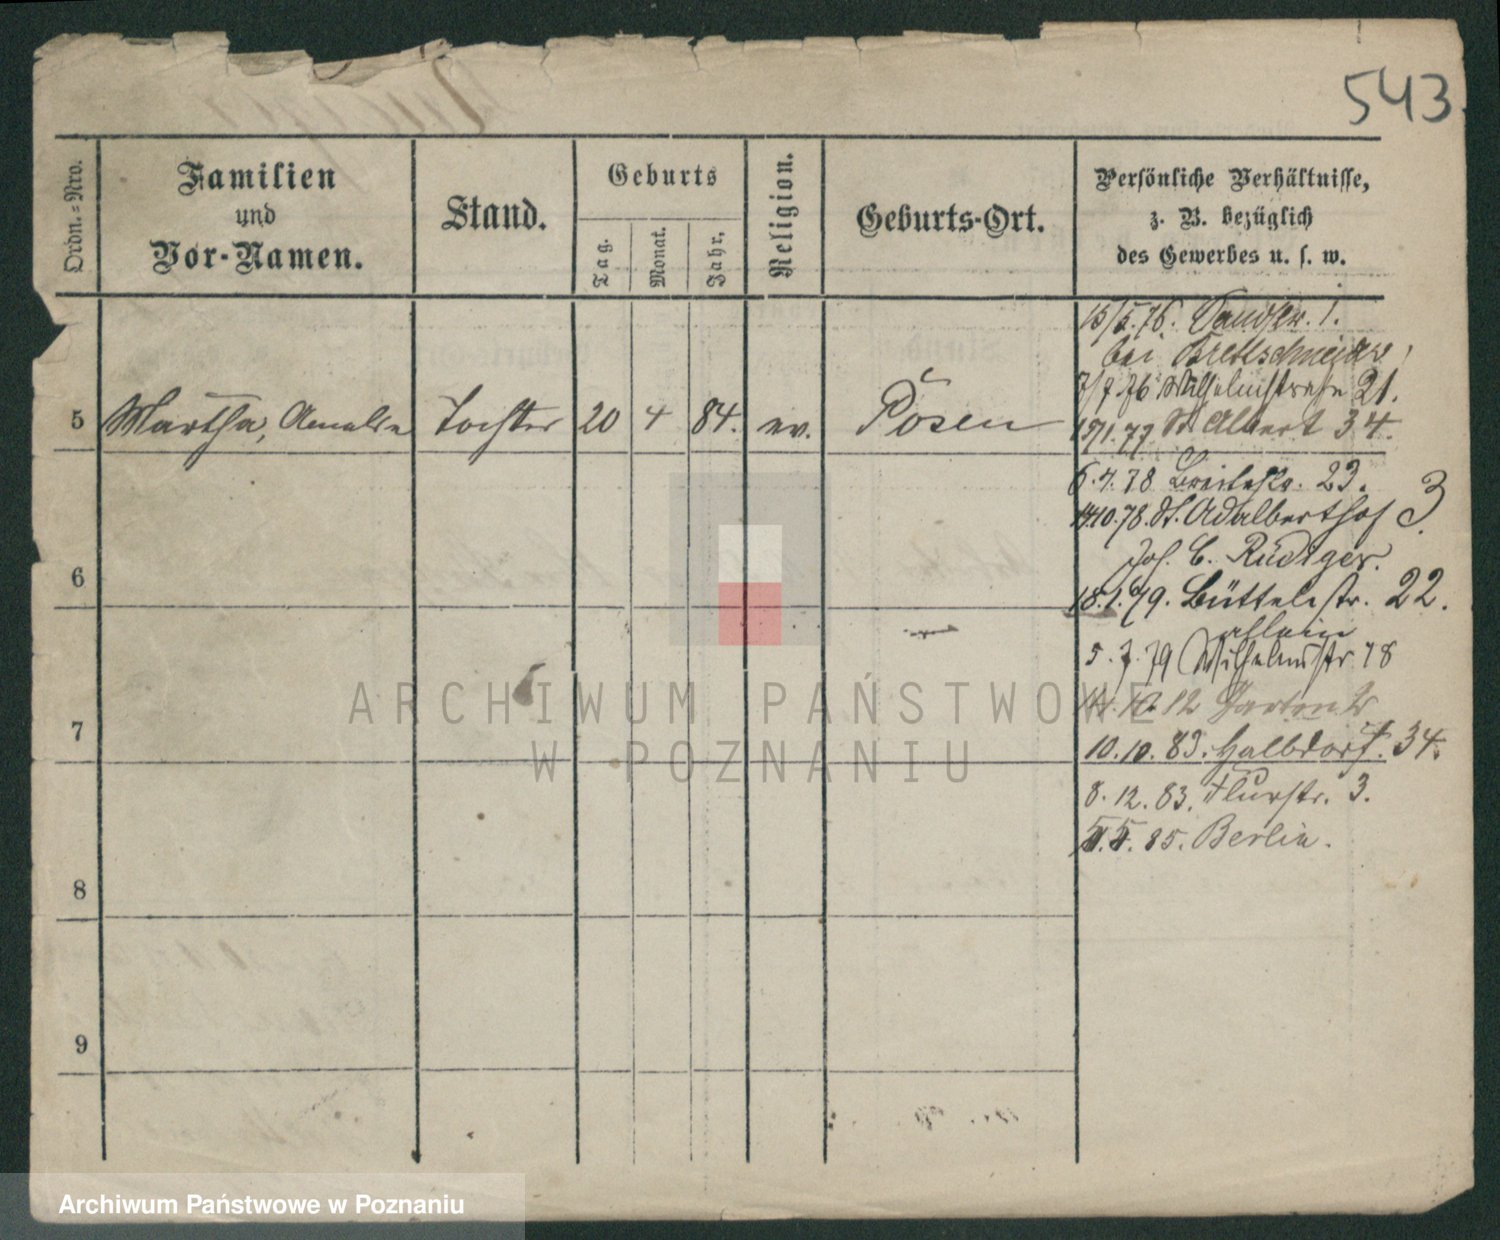 543
Ordn.-Nro.
Familien
und
Vor-Namen.
Stand.
Geburts
Tag.
Monat.
Jahr.
Religion.
Geburts-Ort.
Persönliche Verhältnisse,
z. B. bezüglich
des Gewerbes u. s. w.
15/5.76. Sandstr. 1.
bei Brettschneider,
7/7.76 Wilhelmstraße 21.
5 Martha, Amalie Tochter 20 4 84. ev. Posen
15/1.77 St Albert 34.
6.4.78 Breitestr. 23.
14.10.78. St. Adalberthof 3
Joh. C. Rüdiger.
6
18.1.79. Büttelstr. 22.
allein
5.7.79 Wilhelmstr 18
14.10.12 Gartenstr
7
10.10.83. Halbdorf. 34.
8.12.83. Flurstr. 3.
5.5.85. Berlin.
8
9
ARCHIWUM PAŃSTWOWE
W POZNANIU
Archiwum Państwowe w Poznaniu